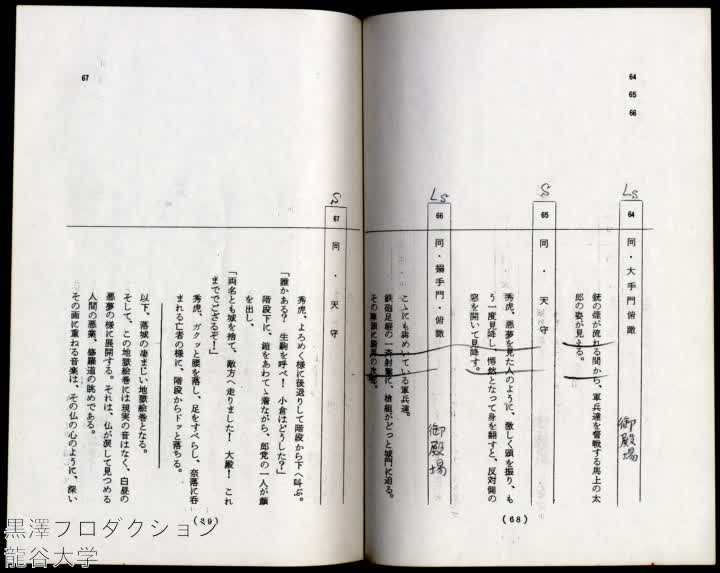 64
65
66
LS
64 同・大手門・俯瞰
銃の煙が流れる間から、軍兵達を督戦する馬上の太
郎の姿が見える。
御殿場
S
65 同・天守
秀虎、悪夢を見た人のように、激しく頭を振り、も
う一度見降し、愕然となって身を翻すと、反対側の
窓を開いて見降す。
LS
66 同・搦手門・俯瞰
こゝにも犇めいている軍兵達。
鉄砲足軽の一斉射撃に、槍組がどっと城門に迫る。
その陣頭に
御殿場
(68)
67
S
67 同・天守
秀虎、よろめく様に後退りして階段から下へ叫ぶ。
「誰かある？ 生駒を呼べ！ 小倉はどうした？」
階段下に、鎧をあわてゝ着ながら、郎党の一人が顔
を出し、
「両名とも城を捨て、敵方へ走りました！ 大殿！ これ
まででござるぞ！」
秀虎、ガクッと腰を落し、足をすべらし、奈落に呑
まれる亡者の様に、階段からドッと落ちる。
以下、落城の凄まじい地獄絵巻となる。
そして、この地獄絵巻には現実の音はなく、白昼の
悪夢の様に展開する。それは、仏が涙して見つめる
人間の悪業、修羅道の眺めである。
その画に重ねる音楽は、その仏の心のように、深い
(69)
黒澤プロダクション
龍谷大学